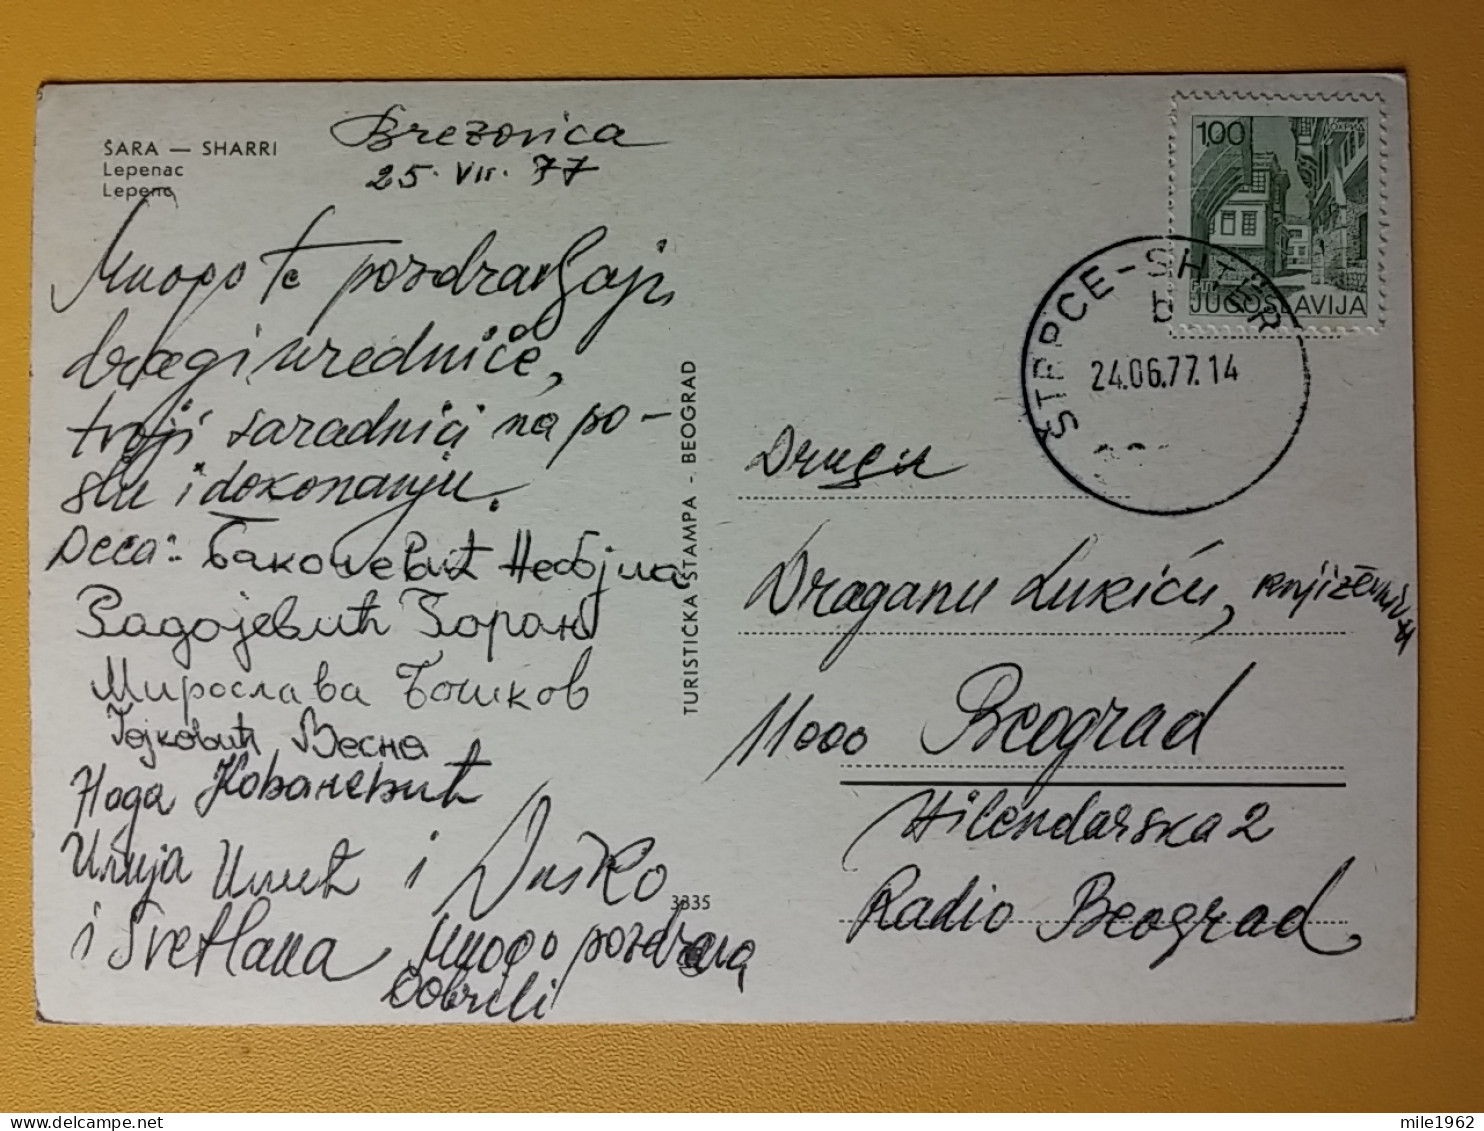 ŠARA — SHARRI
Lepenac
Lepenc
Brezovica
25. VII. 77
Mnogo te pozdravljaju
dragi uredniče,
tvoji saradnici na po-
slu i dokonanju.
Деса:
Небојша
Радојевић Зоран
Мирослава Бошков
Гојковић Весна
Нада Ковачевић
Илија Илић i Duško
i Svetlana mnogo pozdrava
Dobrili
TURISTIČKA ŠTAMPA - BEOGRAD
3335
1,00
JUGOSLAVIJA
ŠTRPCE-SHTËR
b
24.06.77.14
Drugu
Draganu Lukiću, književniku
11000 Beograd
Hilendarska 2
Radio Beograd
mile1962